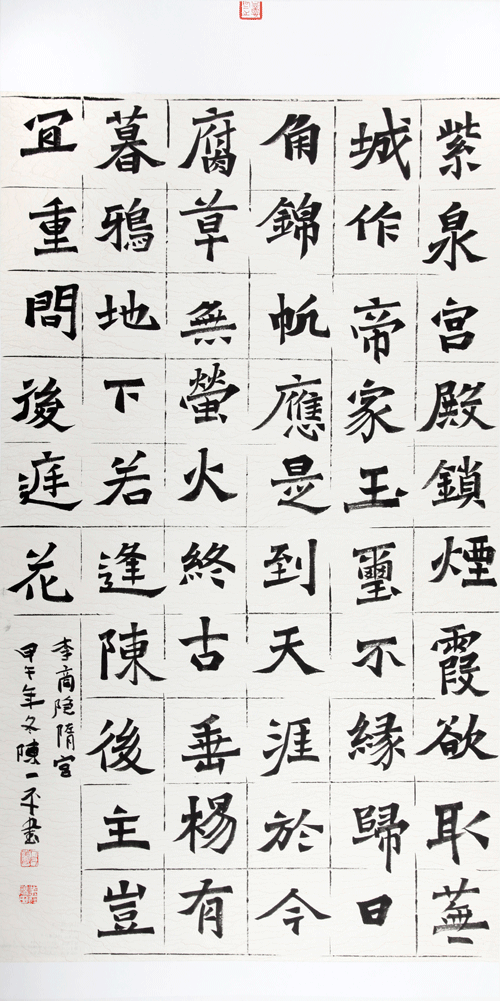 紫泉宫殿鎖煙霞欲取蕪
城作帝家玉璽不緣歸日
角錦帆應是到天涯於今
腐草無螢火終古垂楊有
暮鴉地下若逢陳後主豈
宜重問後庭花
李商隐隋宫
甲午年冬陳一平書